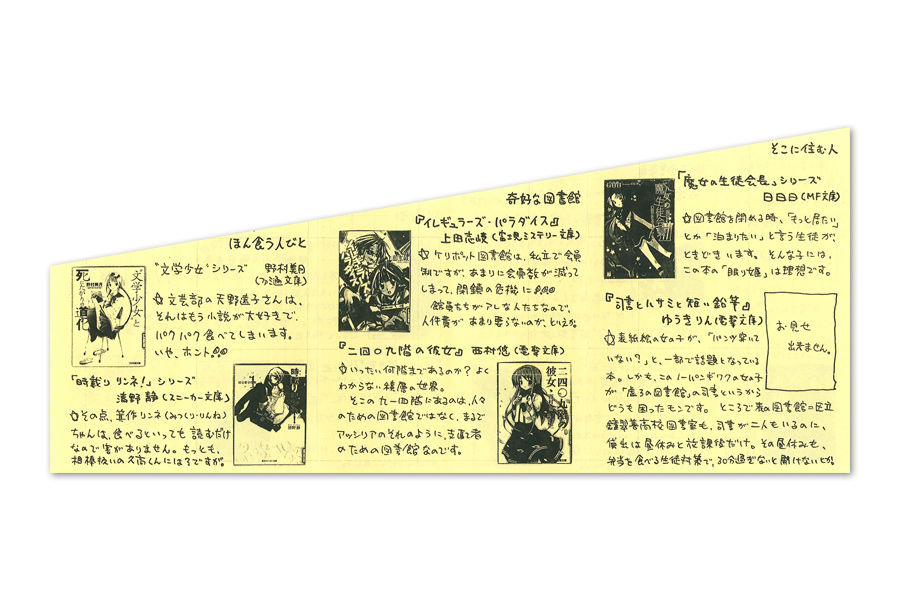 ほん食う人びと
"文学少女"シリーズ 野村美月
(ファミ通文庫)
文芸部の天野遠子さんは、
それはもう小説が大好きで、
パクパク食べてしまいます。
いや、ホント
文学少女と
死にたがりの道化
野村美月
「時載りリンネ!」シリーズ
清野 静(スニーカー文庫)
その点、箕作リンネ(みつくり・りんね)
ちゃんは、食べるといっても読むだけ
なので害がありません。もっとも、
相棒扱いの久高くんには?ですが。
奇妙な図書館
『イレギュラーズ・パラダイス』
上田志岐(富士見ミステリー文庫)
ケリポット図書館は、私立で会員
制ですが、あまりに会員数が減って
しまって、閉鎖の危機に
館員たちがアレな人たちなので、
人件費があまり要らないのが、とりえか。
『二四〇九階の彼女』 西村悠(電撃文庫)
いったい何階まであるのか?よく
わからない積層の世界。
そこの九一四階にあるのは、人々
のための図書館ではなく、まるで
アッシリアのそれのように、支配者
のための図書館なのです。
二四〇九階の
彼女
そこに住む人
「魔女の生徒会長」シリーズ
日日日(MF文庫)
図書館を閉める時、「もっと居たい」
とか「泊まりたい」と言う生徒が、
ときどきいます。そんな子には、
この本の「眠り姫」は理想です。
魔女の
生徒会長
『司書とハサミと短い鉛筆』
ゆうきりん(電撃文庫)
お見せ
出来ません。
表紙絵の女の子が、「パンツ穿いて
いない?」と、一部で話題となっている
本。しかも、このノーパンギワクの女の子
が「庭る図書館」の司書というから
どうも困ったモンです。ところで表の図書館=区立
高校図書室も、司書が二人もいるのに、
貸出は昼休みと放課後だけ。その昼休みも、
弁当を食べる生徒対策で、30分過ぎないと開けないとか。